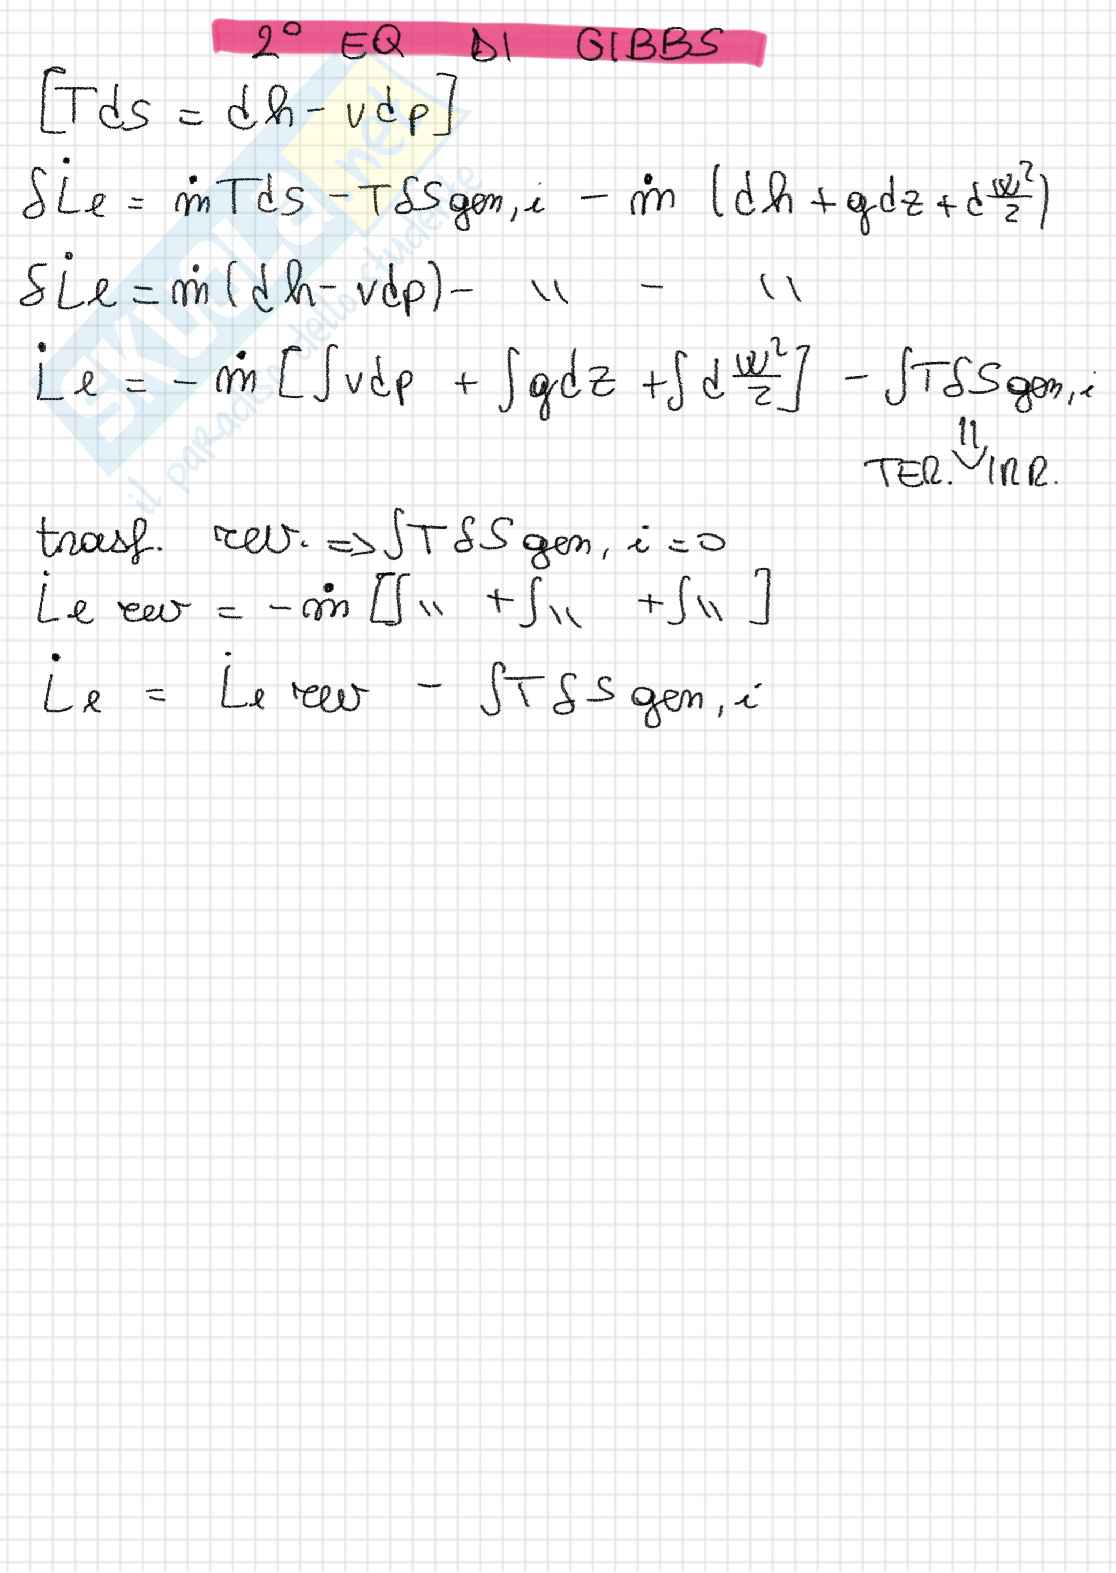 2° EQ DI GIBBS
[Tds = dh - vdp]
δL̇e = ṁTds - TδSgen,i - ṁ (dh + gdz + dw²/2)
δL̇e = ṁ(dh - vdp) - " - "
L̇e = -ṁ [∫vdp + ∫gdz + ∫d w²/2] - ∫TδSgen,i
⇓
TER. IRR.
trasf. rev. => ∫TδSgen,i = 0
L̇e rev = -ṁ [∫" + ∫" + ∫"]
L̇e = L̇e rev - ∫TδSgen,i
SKUOLA.net
il paradiso dello studente